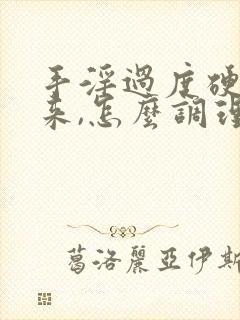 手淫過度硬
來,怎麼調理
葛洛麗亞伊斯